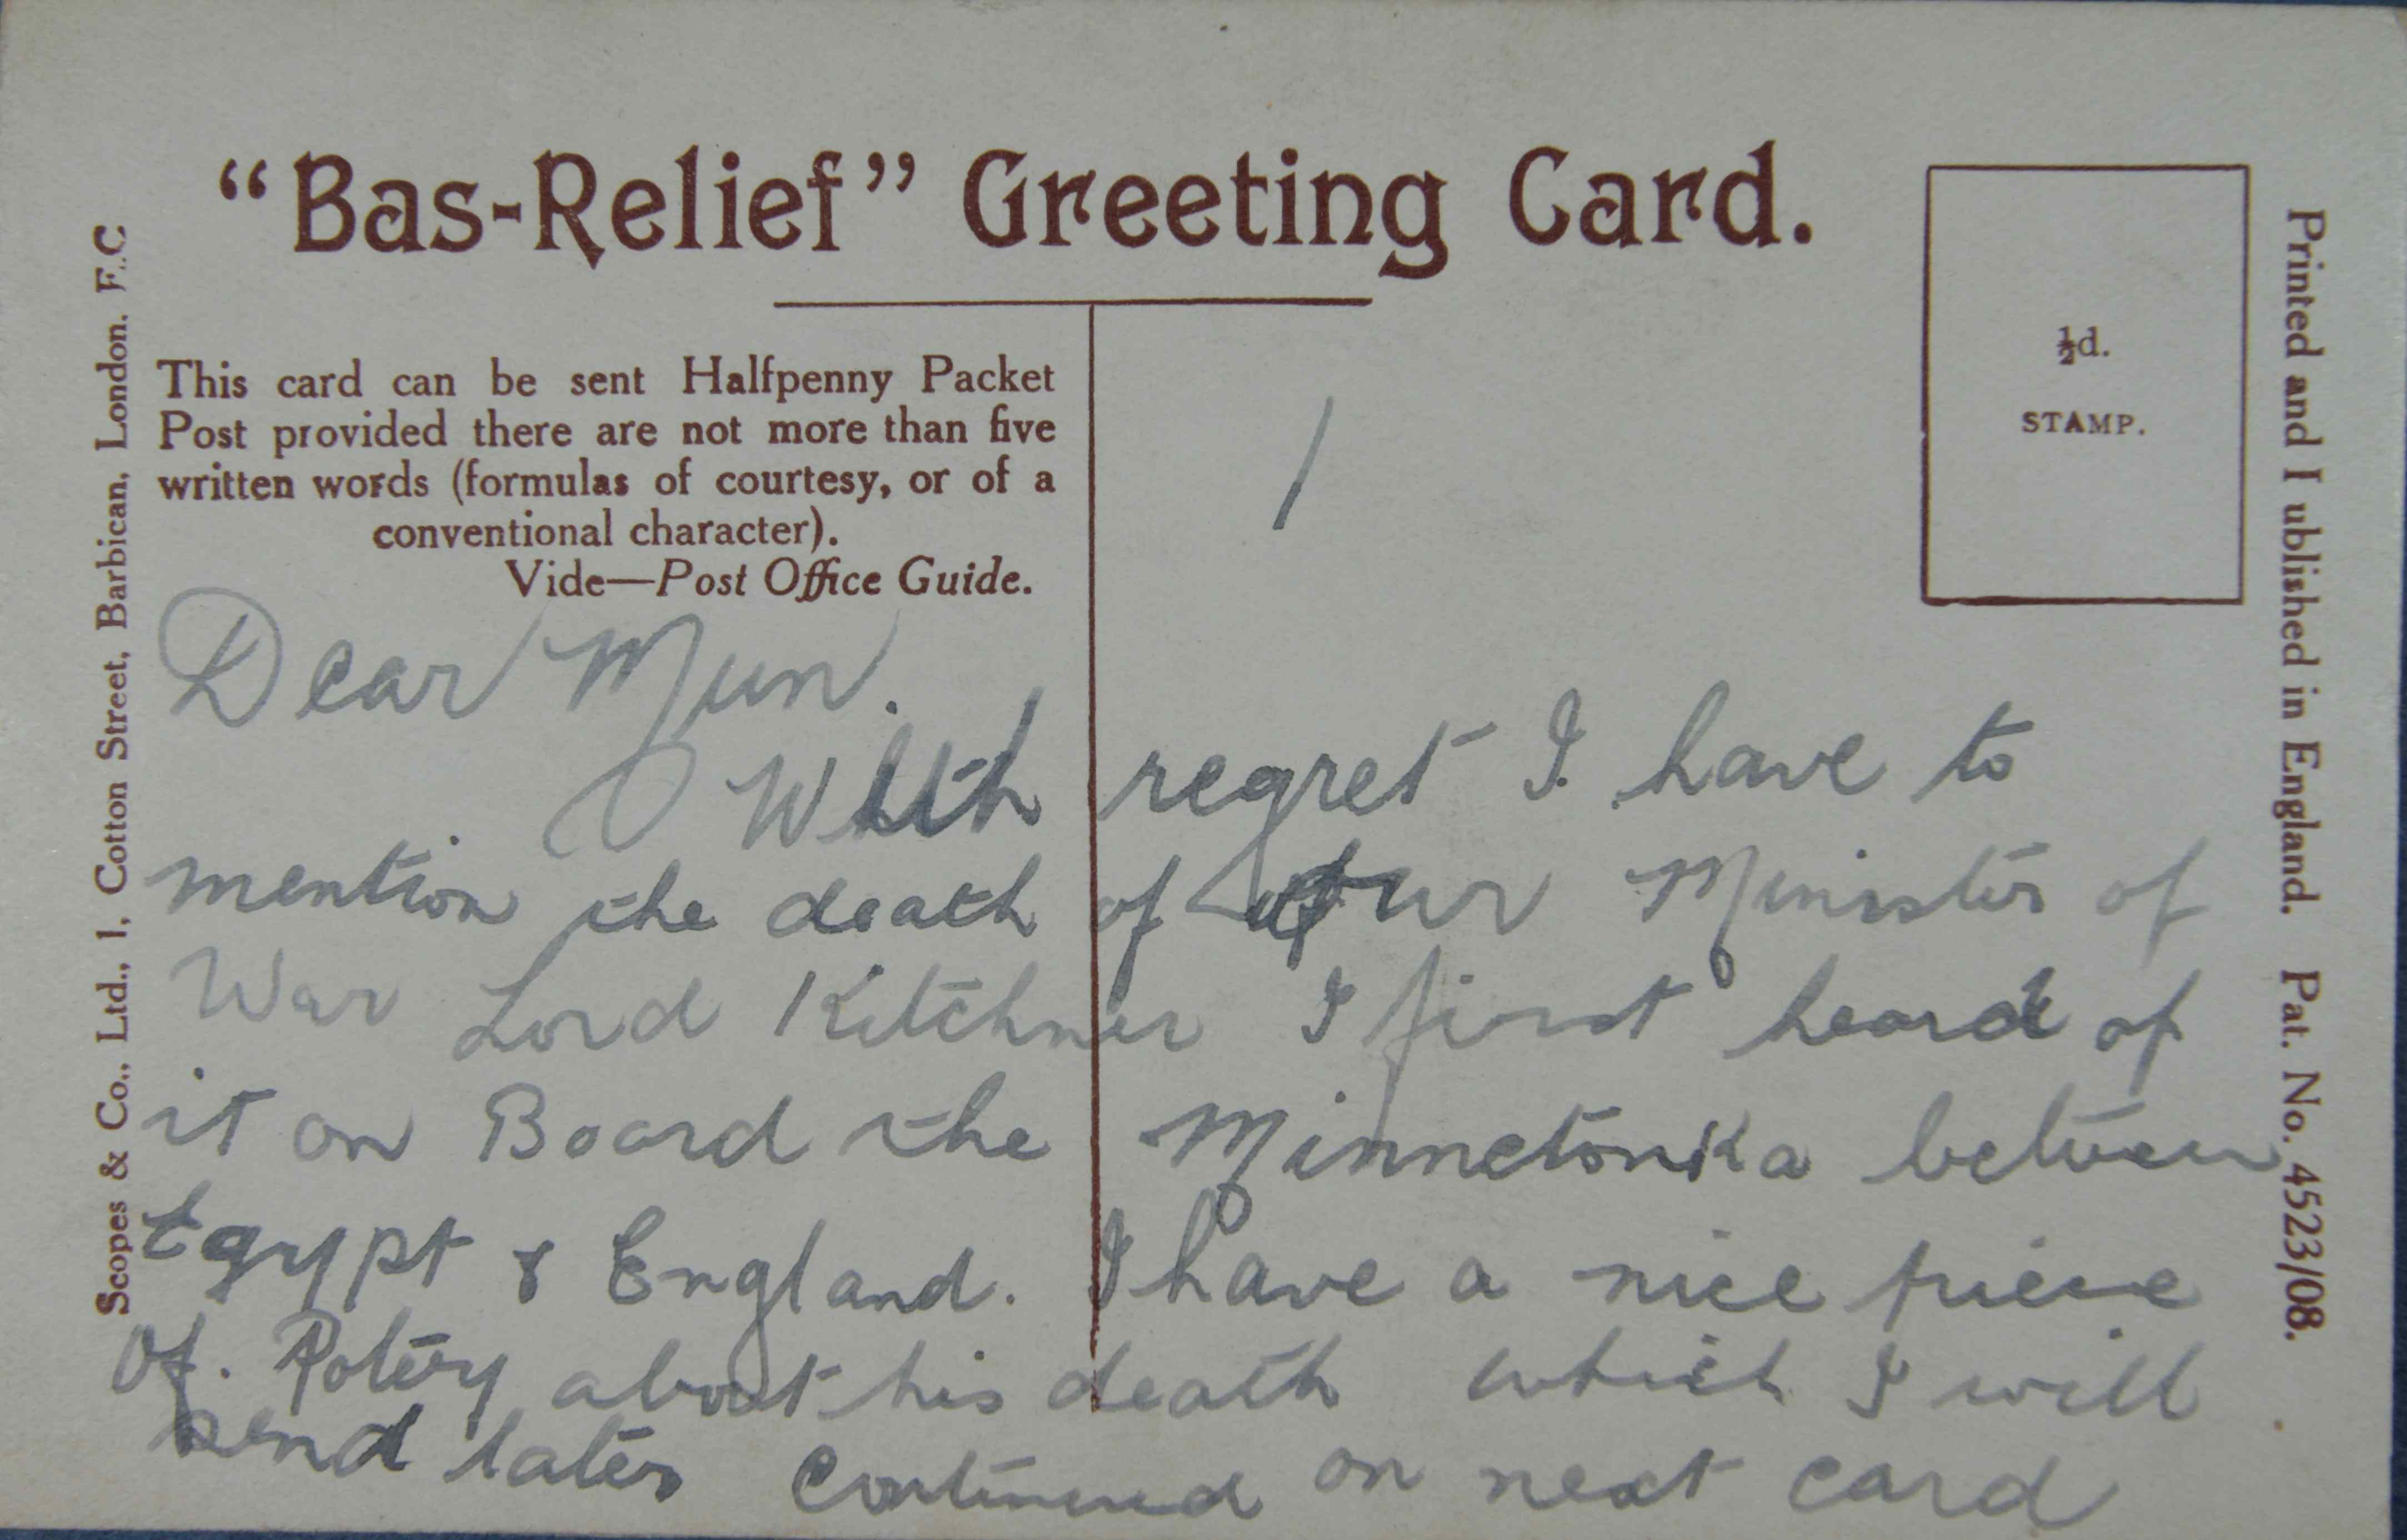 "Bas-Relief" Greeting Card.
This card can be sent Halfpenny Packet
Post provided there are not more than five
written words (formulas of courtesy, or of a
conventional character).
Vide—Post Office Guide.
½d.
STAMP.
1
Dear Mun.
With regret I have to
mention the death of our Minister of
War Lord Kitchner I first heard of
it on Board the Minnetonka between
Egypt & England. I have a nice piece
of. Potery about his death which I will
send later continued on next card
Scopes & Co., Ltd., 1, Cotton Street, Barbican, London. E.C
Printed and Published in England. Pat. No. 4523/08.